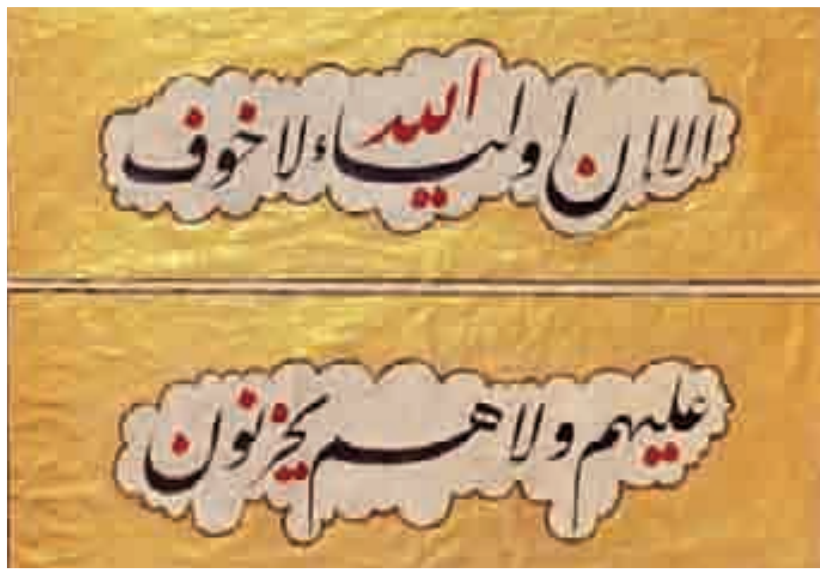 الا ان اولیاء الله لا خوف
علیهم ولا هم یحزنون